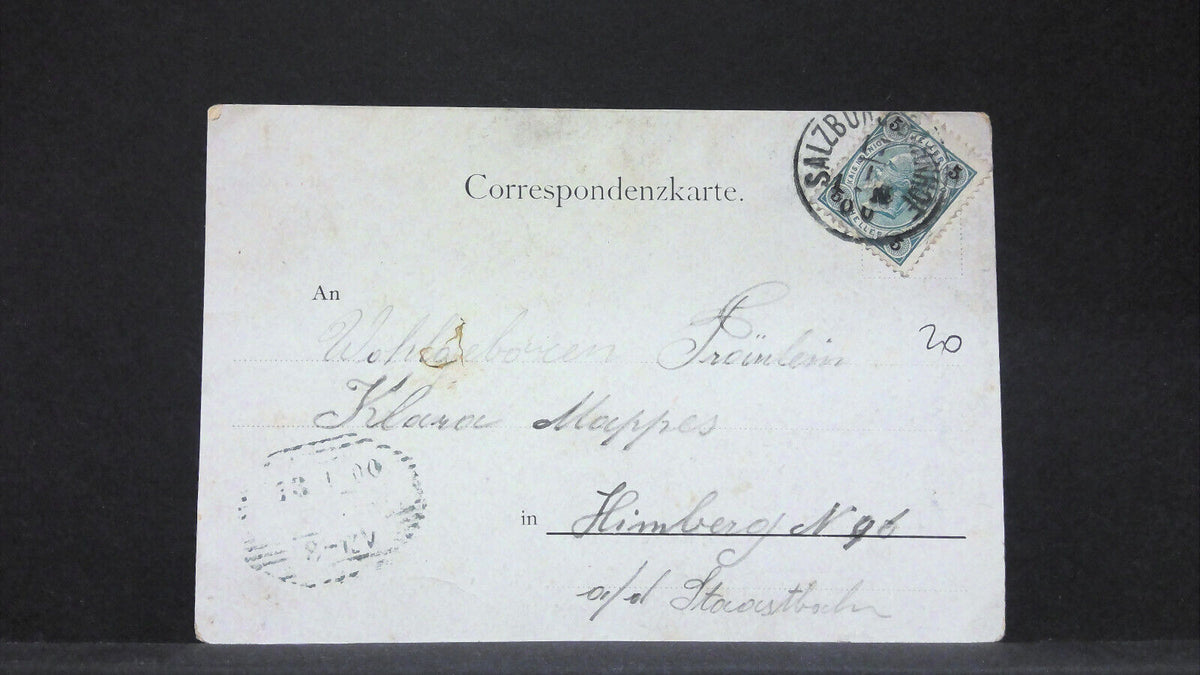 Correspondenzkarte.
SALZBURG BAHNHOF
5 5 5
HELLER
An
Wohlgeboren Fräulein
20
Klara Mappes
in Himberg N 96
a/d Staastbahn